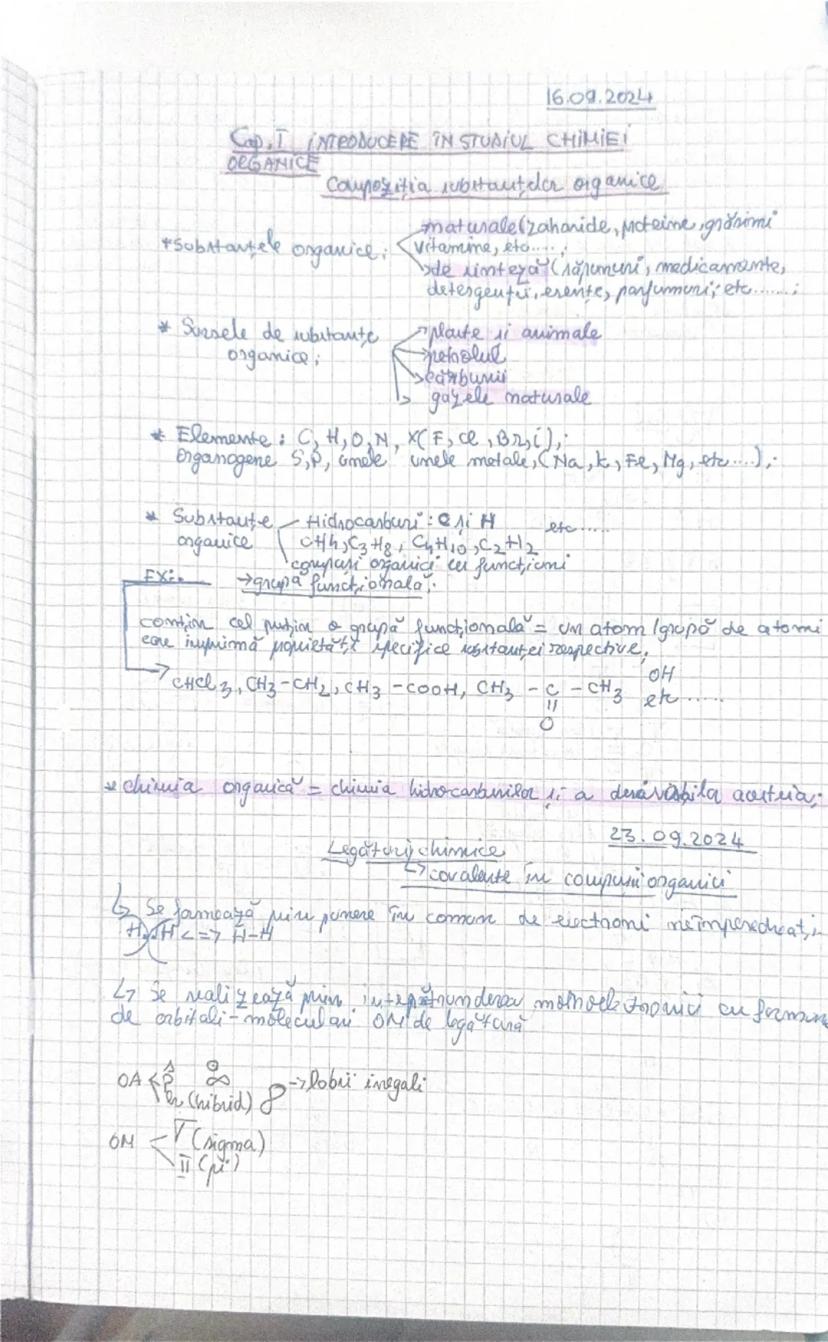 16.09.2024
Cap. I INTRODUCERE ÎN STUDIUL CHIMIEI
ORGANICE
Compoziția substanțelor organice
*Substanțele organice: naturale (zaharide, proteine, grăsimi
vitamine, etc.....;
de sinteză (săpunuri, medicamente,
detergenții, esențe, parfumuri; etc.......;
* Sursele de substanțe plante și animale
organice; petrolul
cărbunii
gazele naturale
* Elemente: C, H, O, N, X(F, Cl, Br, i),;
organogene S, P, unele unele metale, (Na, K, Fe, Mg, etc....),;
* Substanțe Hidrocarburi: C și H etc.....
organice CH4, C3H8, C4H10, C2H2
compuși organici cu funcțiuni
EX: →grupă funcțională;
conțin cel puțin o grupă funcțională = un atom/grupă de atomi
care imprimă proprietăți specifice substanței respective;
OH
CHCl3, CH3-CH2, CH3-COOH, CH3 - C - CH3 etc.....
||
O
* chimia organică = chimia hidrocarburilor și a acestuia;
23.09.2024
Legături chimice
↳covalente în compuși organici
↳ Se formează prin punere în comun de electroni neîmperecheați
H H <=> H-H
↳ Se realizează prin întrepătrunderea monoelectronici cu
de orbitali-moleculari OM de legătură
OA p
h (hibrid) →lobii inegali
OM (sigma)
π (pi)